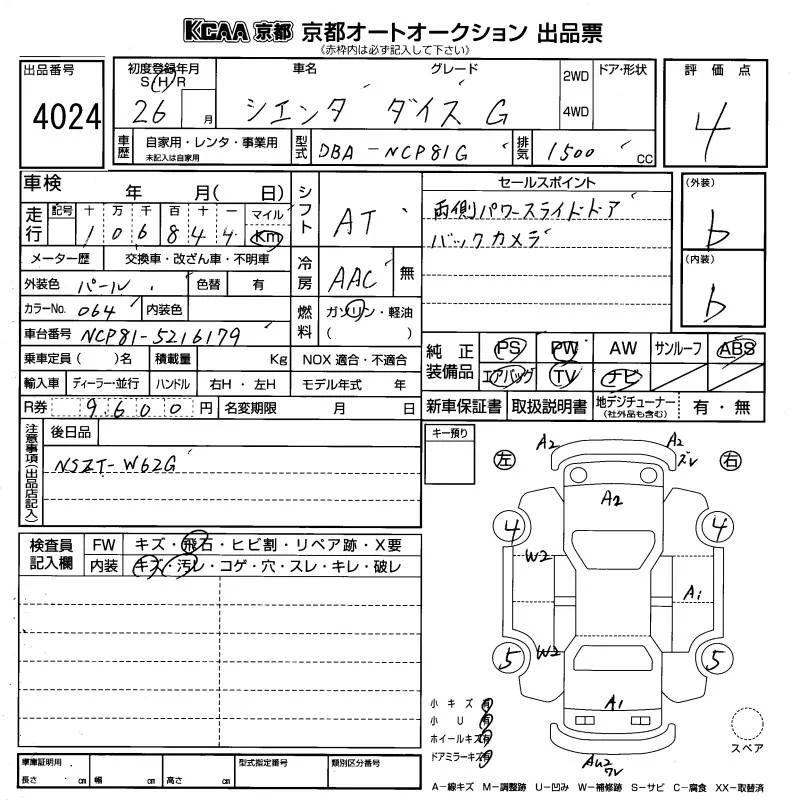 KCAA 京都 京都オートオークション 出品票
《赤枠内は必ず記入して下さい》
出品番号
4024
初度登録年月
S H R
26 月
車名
グレード
シエンタ ダイス G
2WD
4WD
ドア・形状
評価点
4
車歴
自家用・レンタ・事業用
未記入は自家用
型式
DBA-NCP81G
排気
1500 CC
車検 年 月( 日)
走行
記号 十 万 千 百 十 一 マイル
1 0 6 8 4 4 Km
メーター歴 交換車・改ざん車・不明車
外装色 パール 色替 有
カラーNo. 064 内装色
車台番号 NCP81-5216179
乗車定員( )名 積載量 Kg NOX 適合・不適合
輸入車 ディーラー・並行 ハンドル 右H・左H モデル年式 年
R券 9600円 名変期限 月 日
シフト AT
冷房 AAC 無
燃料 ガソリン・軽油
( )
セールスポイント
両側パワースライドドア
バックカメラ
(外装)
b
(内装)
b
純正装備品
PS PW AW サンルーフ ABS
エアバッグ TV ナビ
新車保証書 取扱説明書 地デジチューナー 有・無
(社外品も含む)
注意事項(出品店記入)
後日品
NSZT-W62G
キー預り
検査員記入欄
FW キズ・飛石・ヒビ割・リペア跡・X要
内装 キズ・汚レ・コゲ・穴・スレ・キレ・破レ
左 右
A2 A2
ズレ
A2
4 4
W2
A1
5 W2 5
A1
AU2
ワレ
小キズ 有
小U 有
ホイールキズ 有
ドアミラーキズ 有
スペア
車庫証明用
長さ cm 幅 cm 高さ cm
型式指定番号
類別区分番号
A-線キズ M-調整跡 U-凹み W-補修跡 S-サビ C-腐食 XX-取替済